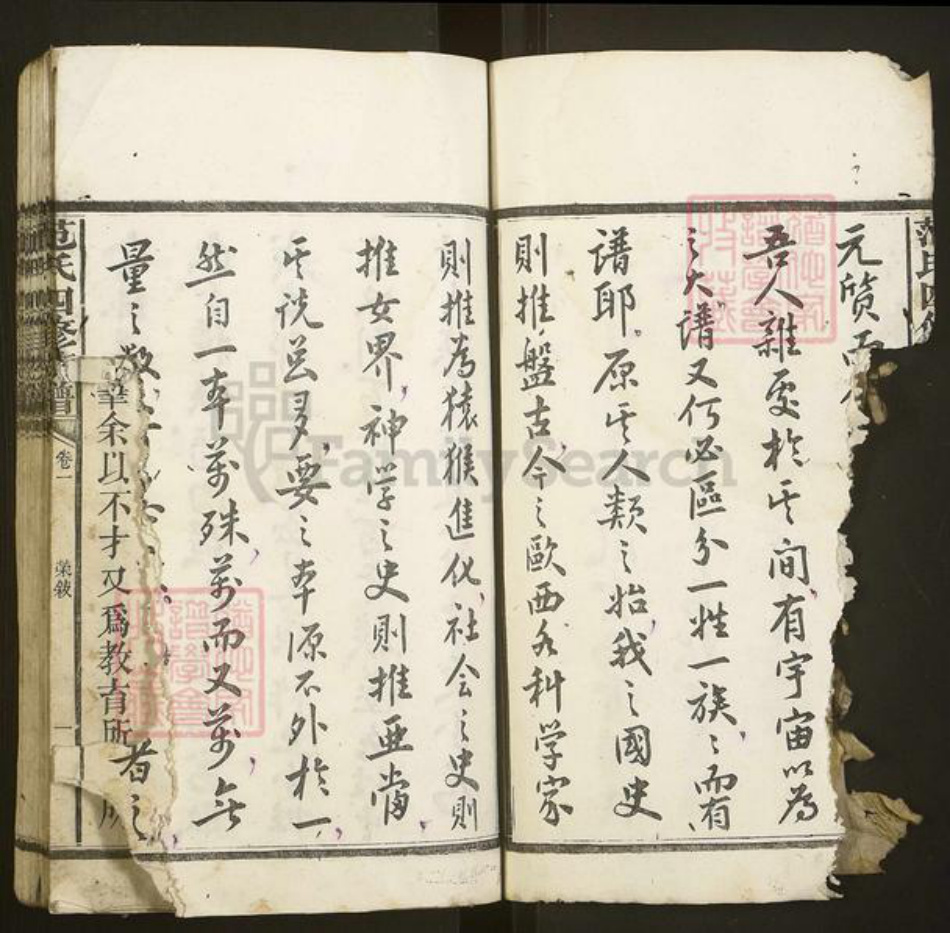 元質而
吾人雜處於其间有宇宙以為
之大譜又何必區分一姓一族之而有
譜耶原其人類之始我之國史
則推盤古今之歐西各科学家
則推為猿猴進化社会之史則
推女界神学之史則推亜當
其说甚多要之本源不外於一
然自一本萬殊萬而又萬無
量之数
者之
華余以不才又爲教育所
范氏四修族譜
卷一
榮敘
一
譜學會
收藏
FamilySearch